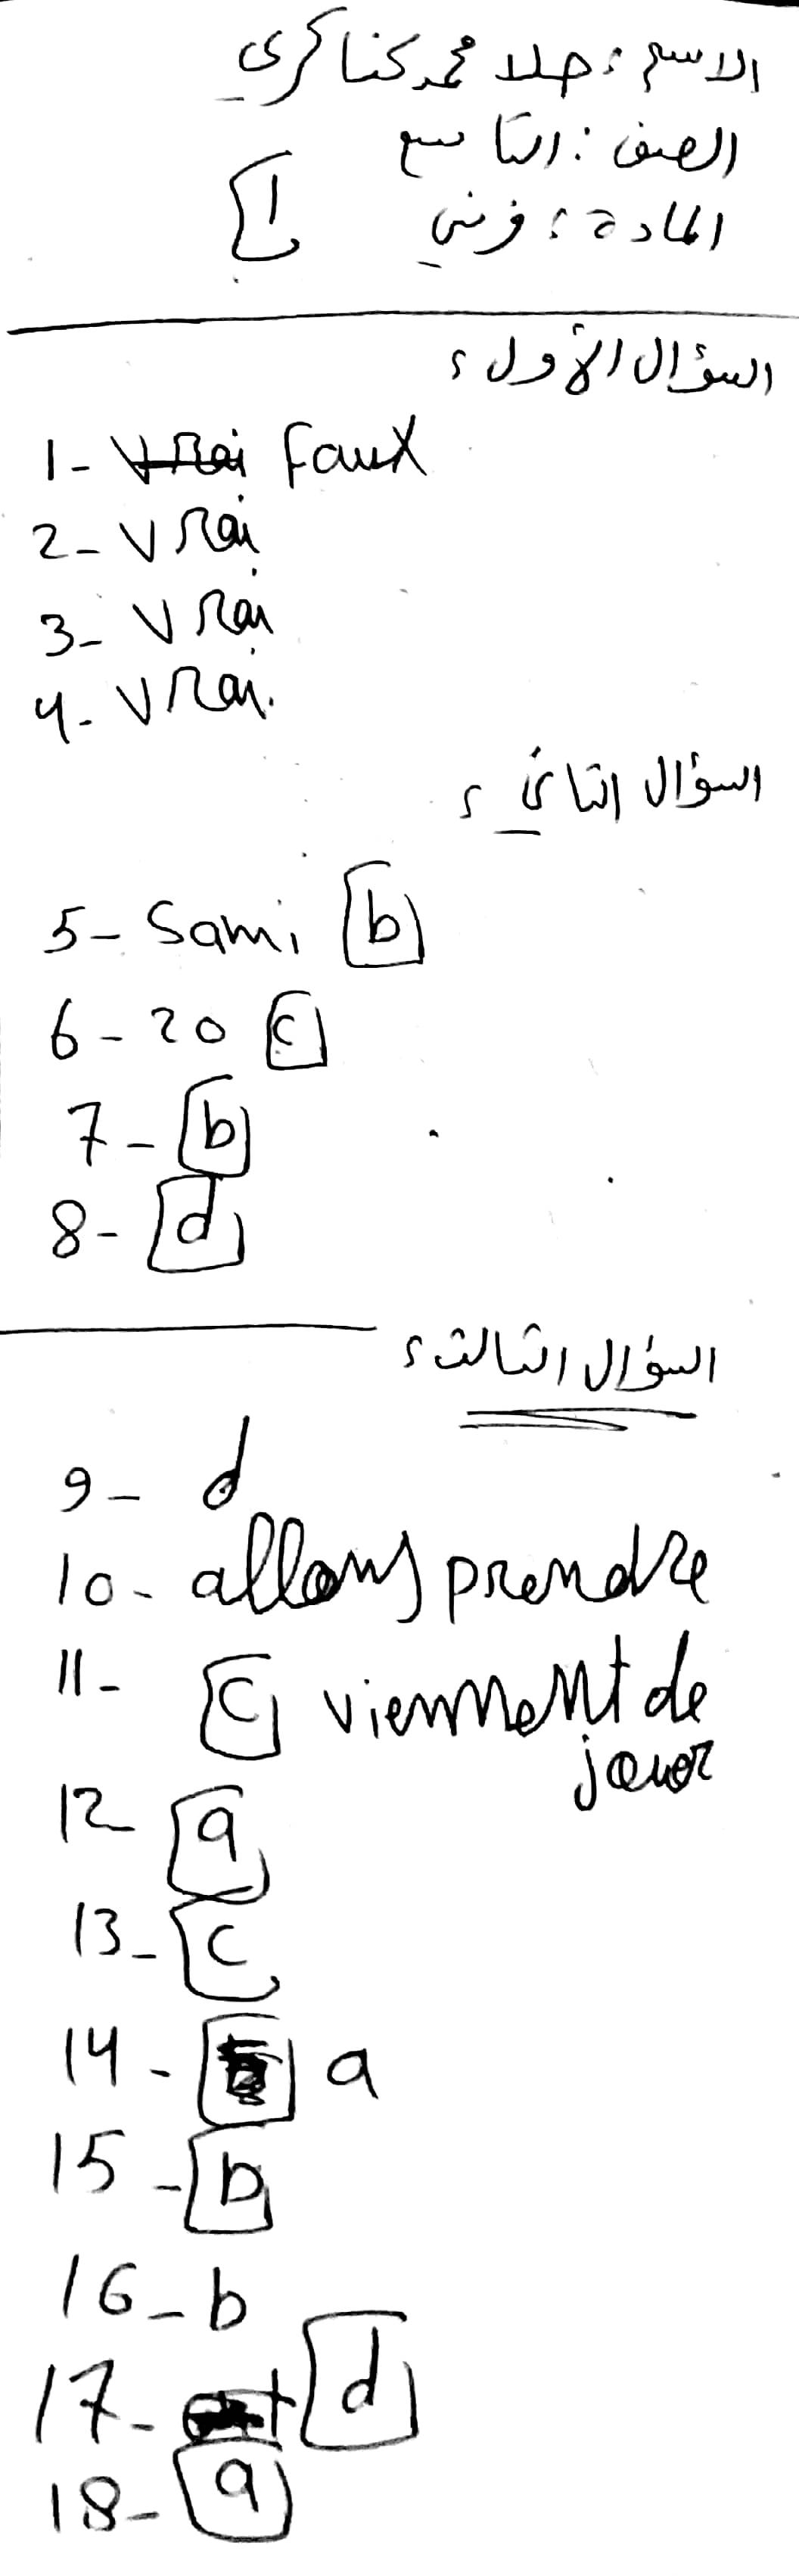 الاسم : حلا محمد كناكري
الصف : التاسع
المادة : فرنسي
1
السؤال الأول :
1- vrai Faux
2- vrai
3- vrai
4- vrai.
السؤال الثاني :
5- Sami b
6- 20 c
7- b
8- d
السؤال الثالث :
9- d
10- allons prendre
11- c viennent de
jouer
12 a
13- c
14- a
15- b
16- b
17- d
18- a